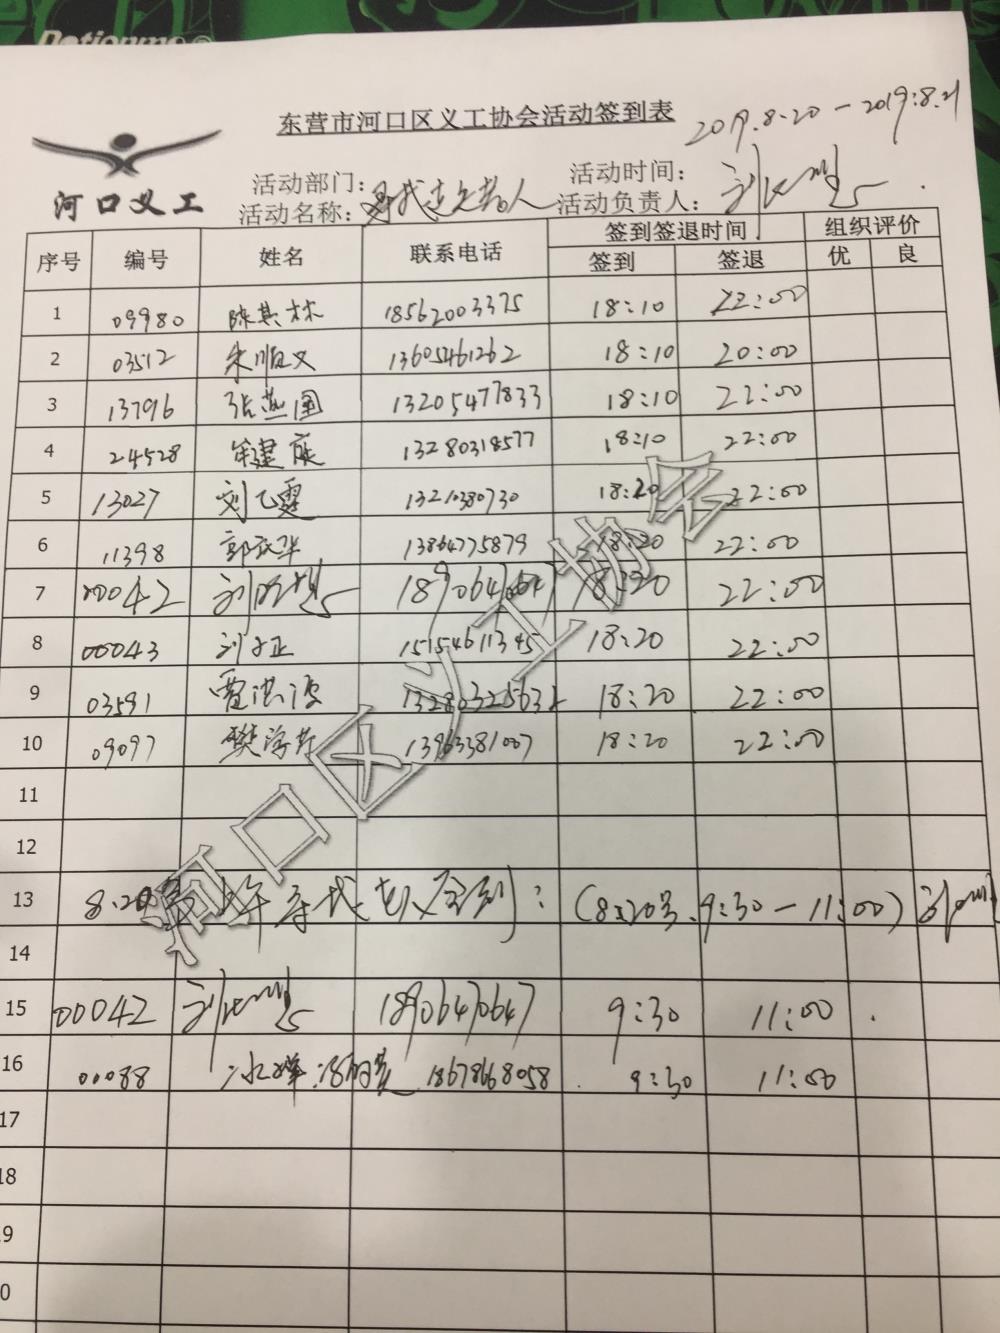 东营市河口区义工协会活动签到表
2019.8.20-2019.8.21
河口义工
活动部门：
活动时间：
活动名称：寻找走失老人
活动负责人：
序号 编号 姓名 联系电话 签到签退时间 组织评价
签到 签退 优 良
1 09980 陈其林 18562003375 18:10 22:00
2 03512 朱顺义 13605461262 18:10 20:00
3 13796 张燕国 13205477833 18:10 22:00
4 24528 18:10 22:00
5 13027 刘乙霆 13210380730 18:20 22:00
6 11398 13864775879 18:20 22:00
7 00042 18906470647 18:20 22:00
8 00043 刘子正 15154611345 18:20 22:00
9 03591 贾洪波 13280325632 18:20 22:00
10 09097 13963381007 18:20 22:00
11
12
13 8.20 (8.20号.9:30-11:00)
14
15 00042 18906470647 9:30 11:00
16 00088 冰峰 18678668058 9:30 11:00
17
18
19
20
河口区义工协会